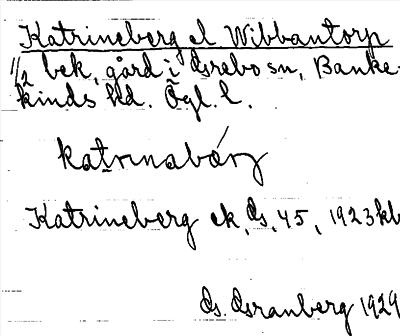 Katrineberg el. Wibbantorp
bek. gård i Grebo sn, Banke-
kinds hd. Ögl. l.
katrinabærj
Katrineberg ek. 45, 1923 kb
Granberg 1929